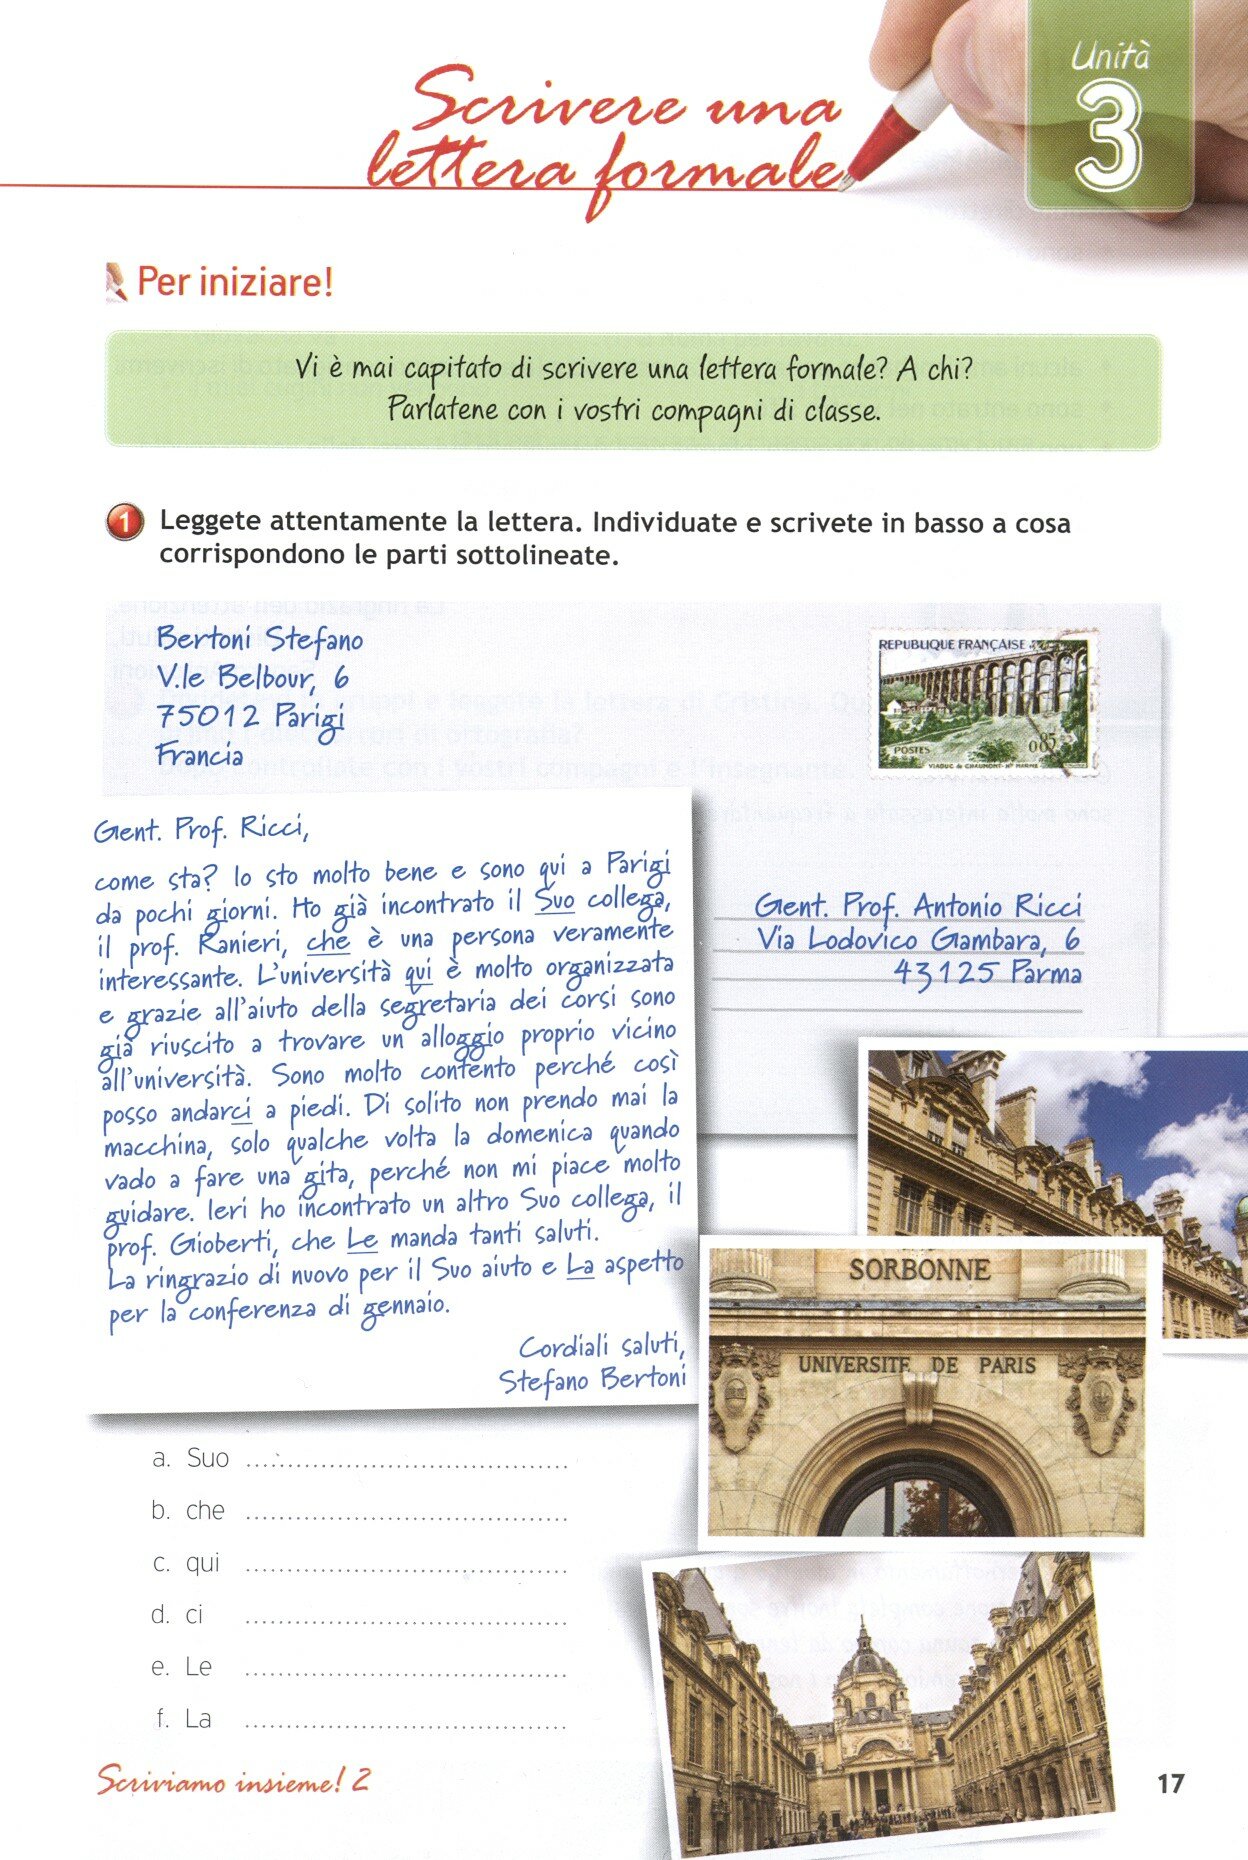 Unità
3
Scrivere una
lettera formale
Per iniziare!
Vi è mai capitato di scrivere una lettera formale? A chi?
Parlatene con i vostri compagni di classe.
1 Leggete attentamente la lettera. Individuate e scrivete in basso a cosa
corrispondono le parti sottolineate.
Bertoni Stefano
V.le Belbour, 6
75012 Parigi
Francia
REPUBLIQUE FRANÇAISE
0,85
POSTES
VIADUC DE CHAUMONT
Gent. Prof. Antonio Ricci
Via Lodovico Gambara, 6
43125 Parma
Gent. Prof. Ricci,
come sta? Io sto molto bene e sono qui a Parigi
da pochi giorni. Ho già incontrato il Suo collega,
il prof. Ranieri, che è una persona veramente
interessante. L'università qui è molto organizzata
e grazie all'aiuto della segretaria dei corsi sono
già riuscito a trovare un alloggio proprio vicino
all'università. Sono molto contento perché così
posso andarci a piedi. Di solito non prendo mai la
macchina, solo qualche volta la domenica quando
vado a fare una gita, perché non mi piace molto
guidare. Ieri ho incontrato un altro Suo collega, il
prof. Gioberti, che Le manda tanti saluti.
La ringrazio di nuovo per il Suo aiuto e La aspetto
per la conferenza di gennaio.
Cordiali saluti,
Stefano Bertoni
SORBONNE
UNIVERSITE DE PARIS
a. Suo
b. che
c. qui
d. ci
e. Le
f. La
Scriviamo insieme! 2
17